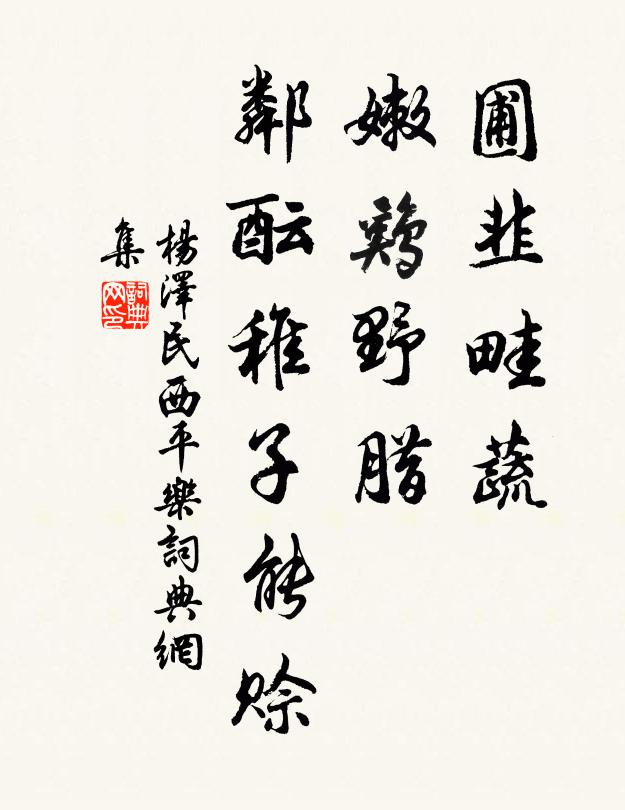 圃韭畦蔬
嫩鷄野腊
鄰酝稚子能賒
楊澤民西平樂詞典網
集
詞典網印